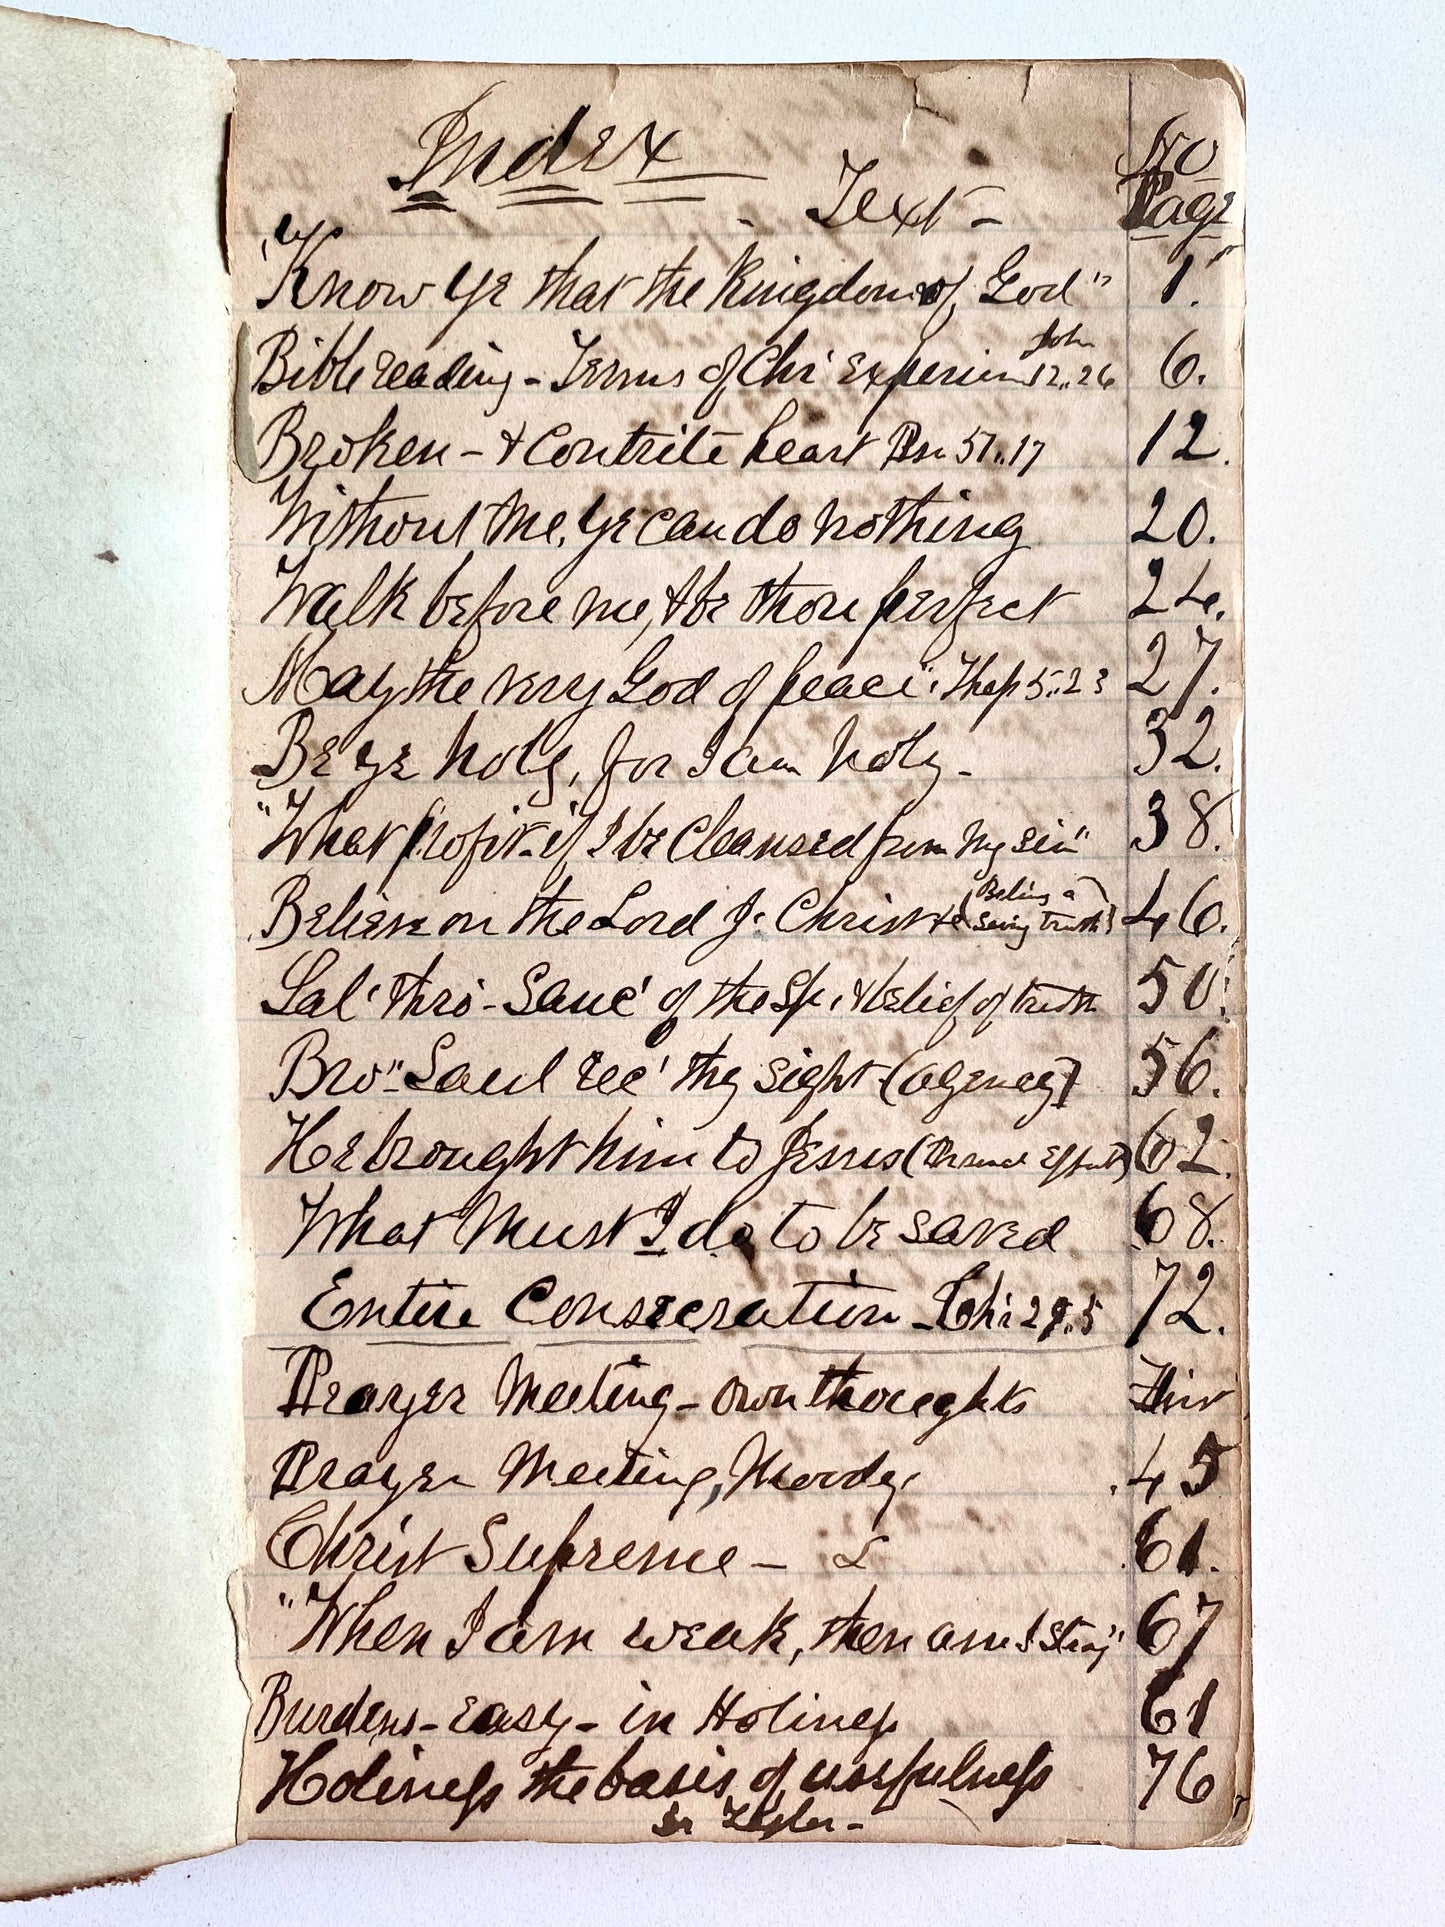 Index
Text -
No
Page
"Know Ye that the Kingdom of God" 1.
Bible reading - Terms of Chr' Experien John 12,,26 6.
Broken - & Contrite heart Psm 51,,17 12.
Without Me, Ye can do nothing 20.
Walk before me, & be thou perfect 24.
May the very God of peace" 1 Thess 5,,23 27.
Be ye holy, for I am holy - 32.
"What profit - if I be Cleansed from my sin" 38.
Believe on the Lord J. Christ &c (Believing a Saving truth) 46.
Sal' thro - Sanc' of the Sp. & belief of truth 50.
Bro" Saul rec' thy sight (agency) 56.
He brought him to Jesus ( Effort) 62.
What Must I do to be saved 68.
Entire Consecration - 1 Chr 29,,5 72.
Prayer Meeting - own thoughts
Prayer Meeting, Moody, 45
Christ Supreme - 61.
"When I am weak, then am I Strong" 67
Burdens - easy - in Holiness 61
Holiness the basis of usefulness 76